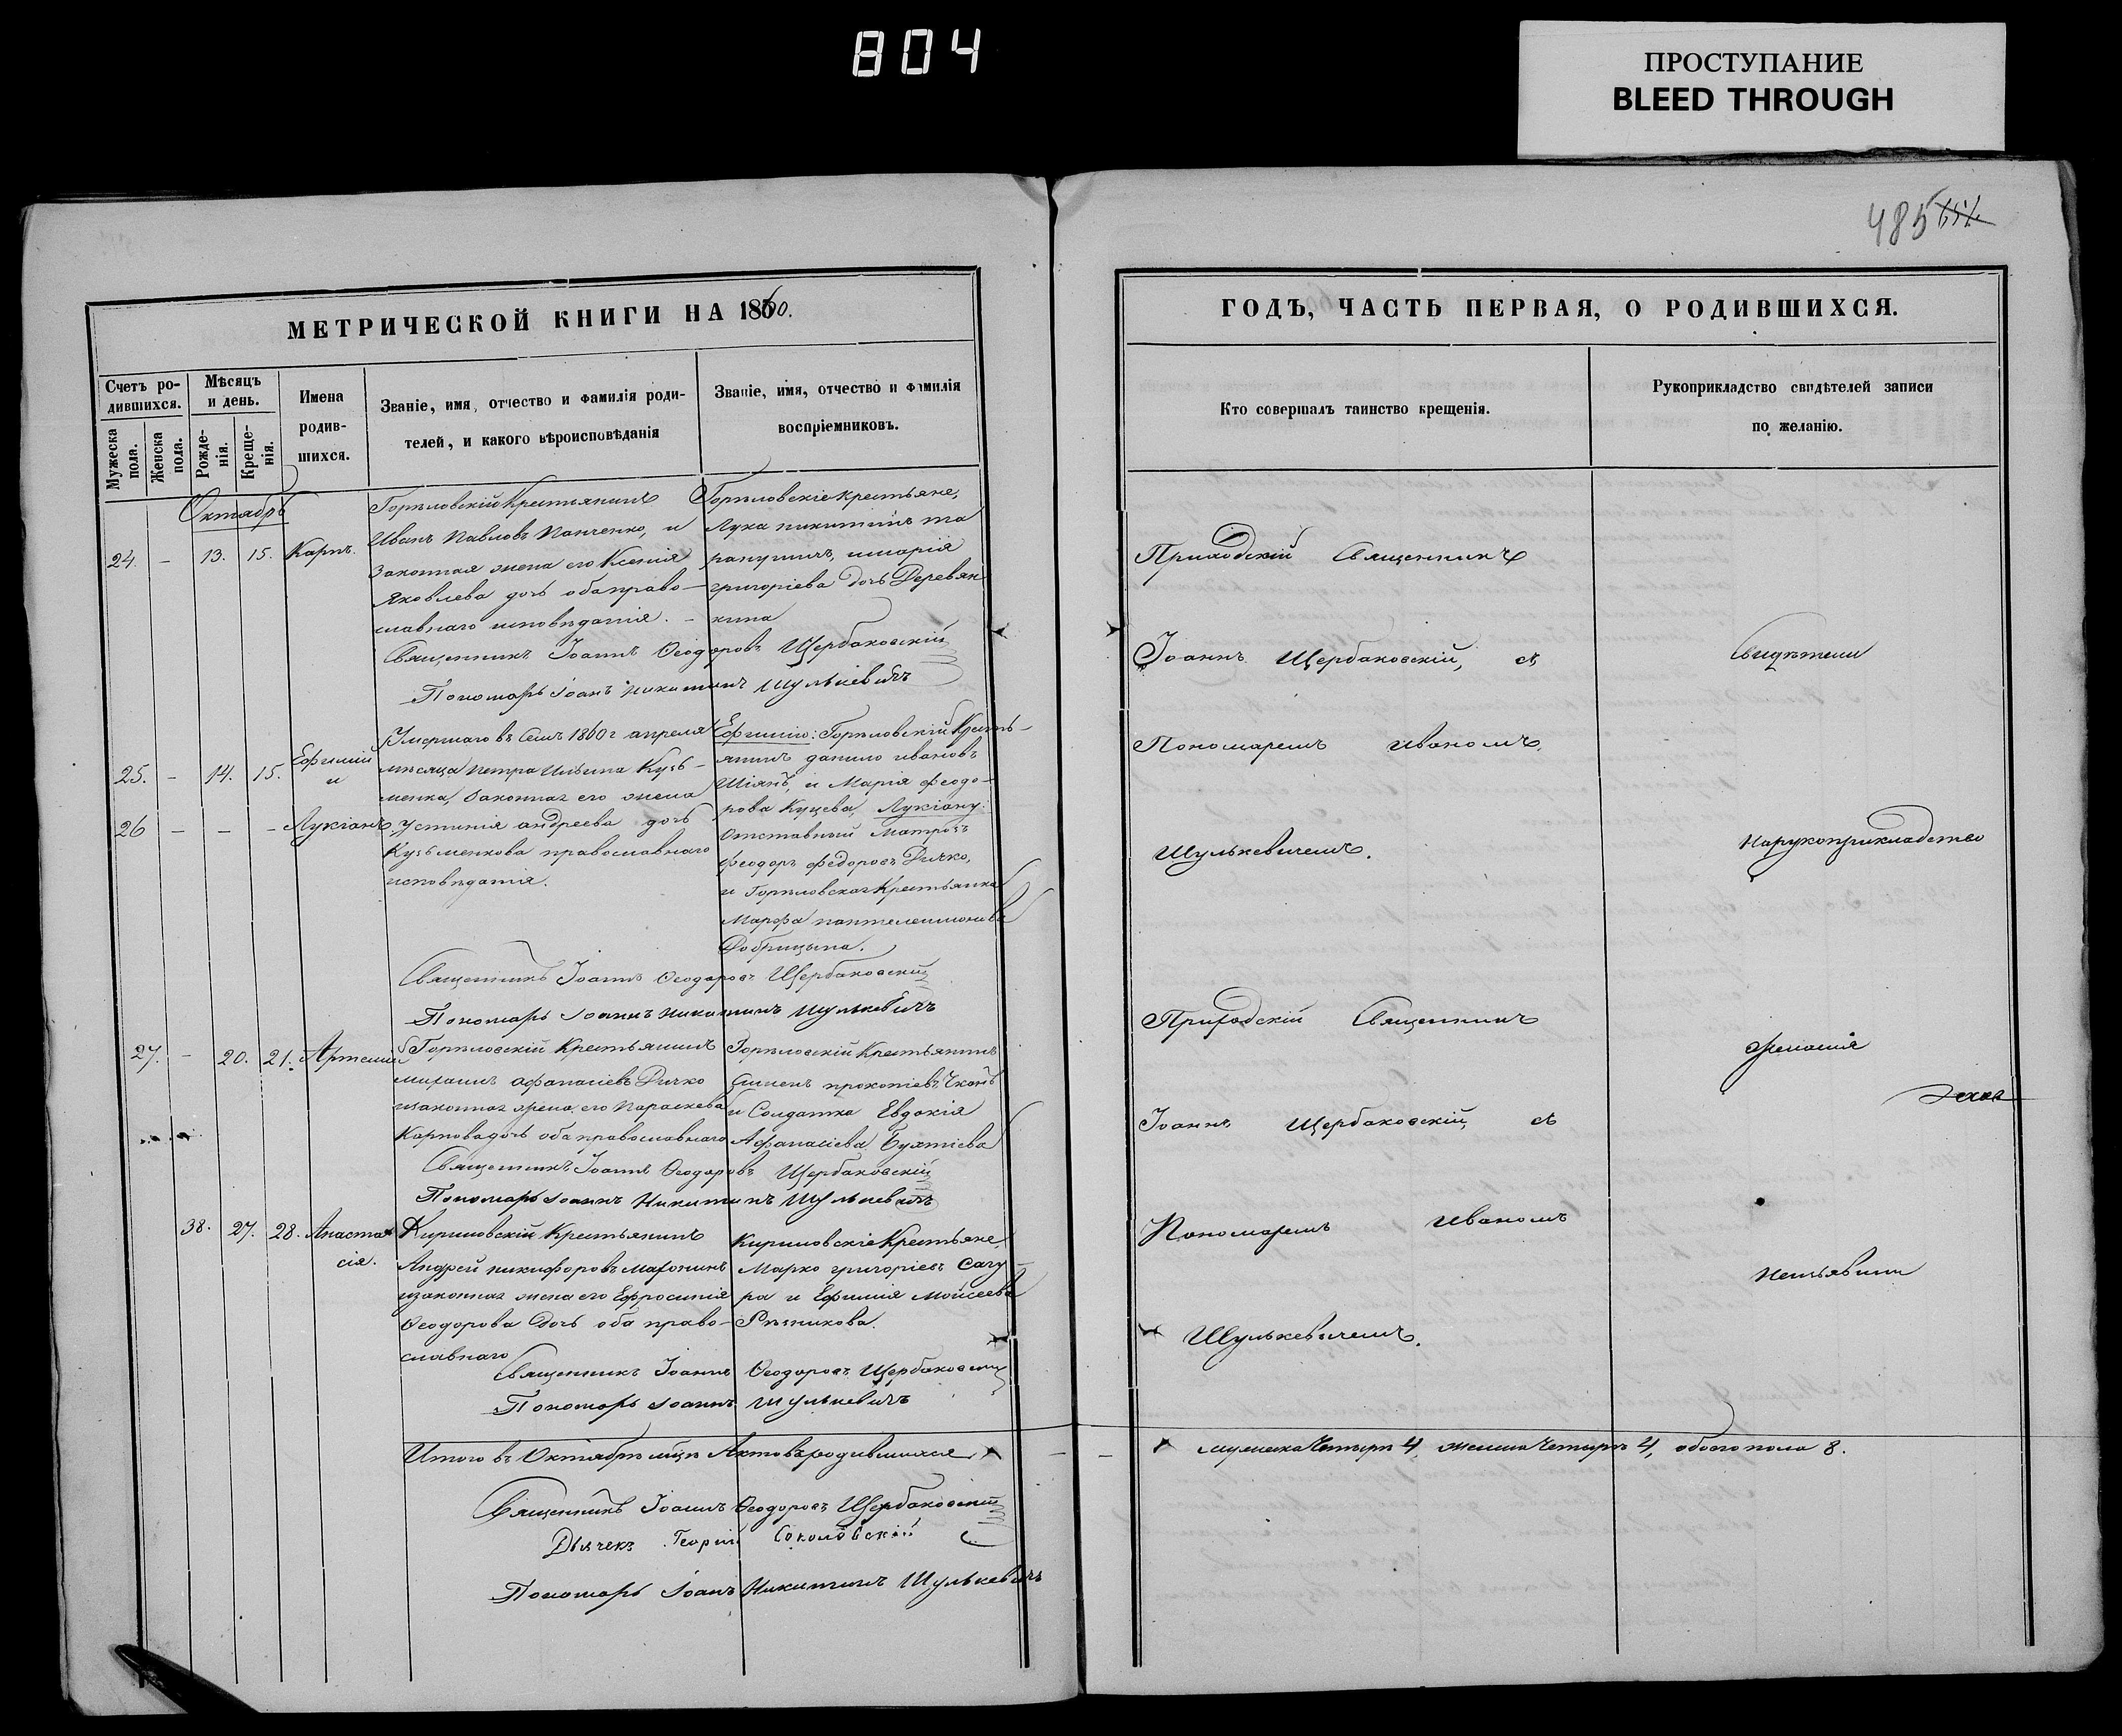 804
ПРОСТУПАНИЕ
BLEED THROUGH
485
МЕТРИЧЕСКОЙ КНИГИ НА 1860.
Счетъ ро-
дившихся.
Мужеска пола.
Женска пола.
Мѣсяцъ
и день.
Рожде-
нія.
Креще-
нія.
Имена
родив-
шихся.
Званіе, имя, отчество и фамилія роди-
телей, и какого вѣроисповѣданія
Званіе, имя, отчество и фамилія
воспріемниковъ.
Октябрь
24. – 13. 15. Карпъ.
Горѣловскій Крестьянинъ
Иванъ Павловъ Панченко, и
Законная жена его Ксенія
Яковлева дочь оба право-
славнаго исповѣданія. –
Горѣловскіе крестьяне,
Лука никитинъ та
ранушичъ, имарія
григоріева дочь Деревян
кина
Священникъ Іоаннъ Ѳеодоровъ Щербаковскій
Пономарь Іоанъ Никитинъ Шулькевичъ
25. – 14. 15. Ефимій
и
26 – – – Лукіанъ
Умершаго въ Семъ 1860 г апреля
мѣсяца Петра Ильина Кузь-
менка, Законная его жена
Устинія андреева дочь
Кузьменкова православнаго
исповѣданія.
Ефимію: Горѣловскій Кресть-
янинъ данило ивановъ
Шіянъ, и Марія феодо-
рова Куцева, Лукіану:
Отставный Матрозъ
феодоръ федоровъ Дичко,
и Горѣловская Крестьянка
Марфа пантелеимонова
Добрицына.
Священникъ Іоаннъ Ѳеодоровъ Щербаковскій
Пономарь Іоаннъ Никитинъ Шулькевичъ
27. – 20. 21. Артемій
Горѣловскій Крестьянинъ
михаилъ афанасіевъ Дичко
изаконная жена его Параскева
Карповадочь оба православнаго
Горѣловскій Крестьянинъ
Симеонъ прокопіевъ
и Солдатка Евдокія
Афанасіева Бухтіева
Священникъ Іоаннъ Ѳеодоровъ Щербаковскій
Пономарь Іоаннъ Никитинъ Шулькевичъ
38. 27. 28. Анаста
сія.
Кириловскій Крестьянинъ
Андрей никифоровъ Махонинъ
изаконная жена его Ефросинія
Ѳеодорова Дочь оба право-
славнаго
Кириловскіе Крестьяне,
Марко григоріевъ Сагу
ра и Ефимія Мойсеева
Рѣзникова.
Священникъ Іоаннъ Ѳеодоровъ Щербаковскій
Пономарь Іоаннъ Шулькевичъ
Итого въ Октябрѣ мцѣ Актовъ родившихся
Священникъ Іоаннъ Ѳеодоровъ Щербаковскій
Дьячекъ Георгій Соколовскій
Пономарь Іоанъ Никитинъ Шулькевичъ
ГОДЪ, ЧАСТЬ ПЕРВАЯ, О РОДИВШИХСЯ.
Кто совершалъ таинство крещенія.
Рукоприкладство свидѣтелей записи
по желанію.
Приходскій Священникъ
Іоаннъ Щербаковскій, съ
Пономаремъ Иваномъ
Шулькевичемъ.
Приходскій Священникъ
Іоаннъ Щербаковскій, съ
Пономаремъ Иваномъ
Шулькевичемъ.
Свидѣтели
Нарукоприкладство
Желанія
Неизъявили
мужеска Четыри 4, женска Четыри 4, обоего пола 8.